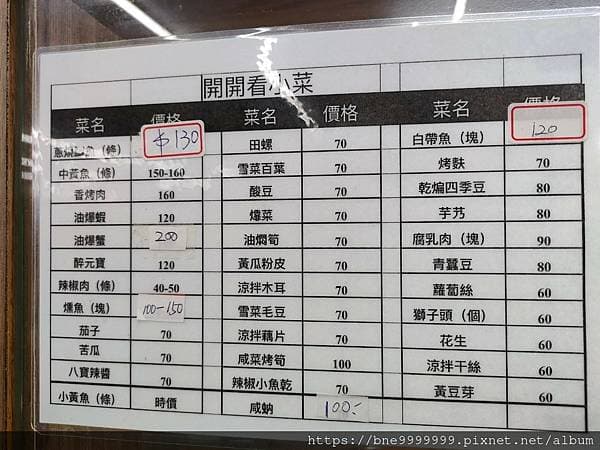 開開看小菜
菜名 價格 菜名 價格 菜名 價格
魚（條） $130 田螺 70 白帶魚（塊） 120
中黃魚（條） 150-160 雪菜百葉 70 烤麩 70
香烤肉 160 酸豆 70 乾煸四季豆 80
油爆蝦 120 㸆菜 70 芋艿 80
油爆蟹 200 油燜筍 70 腐乳肉（塊） 90
醉元寶 120 黃瓜粉皮 70 青蠶豆 80
辣椒肉（條） 40-50 涼拌木耳 70 蘿蔔絲 60
燻魚（塊） 100-150 雪菜毛豆 70 獅子頭（個） 60
茄子 70 涼拌藕片 70 花生 60
苦瓜 70 咸菜烤筍 100 涼拌干絲 60
八寶辣醬 70 辣椒小魚乾 70 黃豆芽 60
小黃魚（條） 時價 咸蚋 100-
https://bne9999999.pixnet.net/album